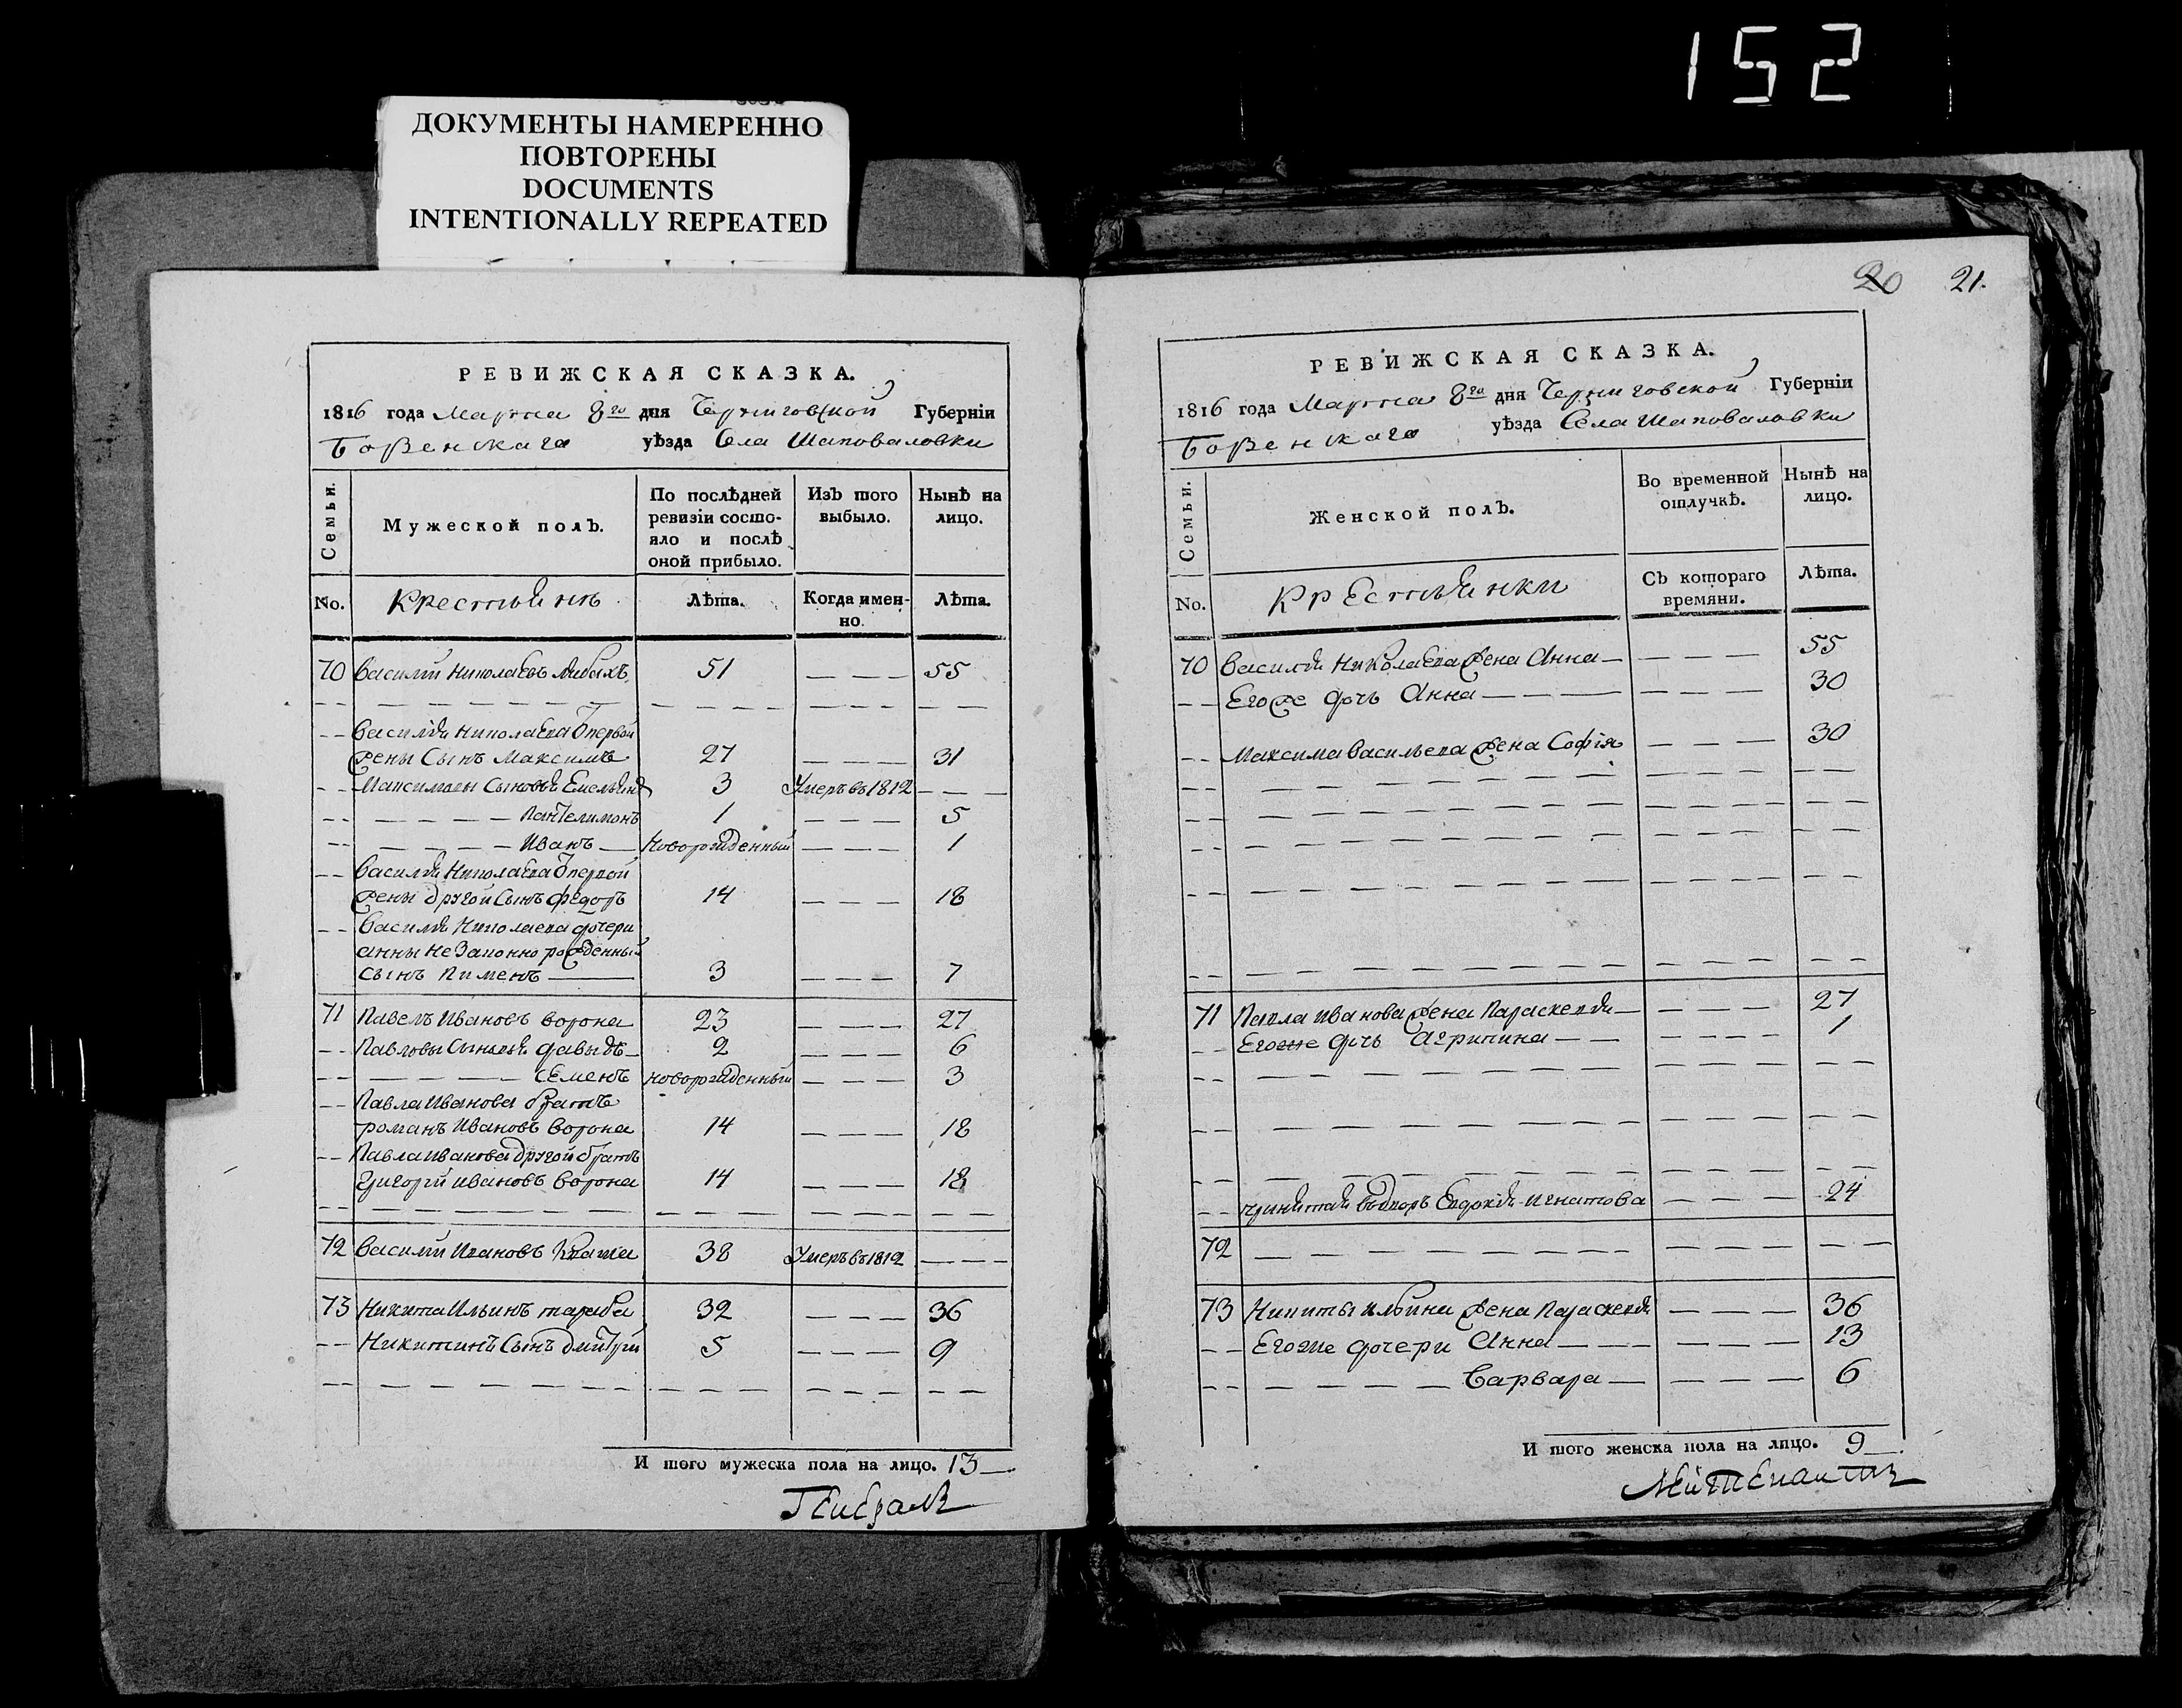 152
ДОКУМЕНТЫ НАМЕРЕННО
ПОВТОРЕНЫ
DOCUMENTS
INTENTIONALLY REPEATED
РЕВИЖСКАЯ СКАЗКА.
1816 года Марта 8го дня Черниговской Губерніи
Борзенскаго уѣзда Села Шаповаловки
Семьи. Мужеской полъ. По послѣдней ревизіи состояло и послѣ оной прибыло. Изъ того выбыло. Нынѣ на лицо.
No. Крестьянъ Лѣта. Когда именно. Лѣта.
70 Василій Николаевъ 51 — — — 55
— — — — — — — —
Василія Николаева отпервой
жены Сынъ Максимъ 27 — — — 31
Максимовы Сыновья Емельянъ 3 Умеръ въ 1812 — — —
— — — — Пантелимонъ 1 — — — 5
— — — — Иванъ — новорожденный — — — 1
Василія Николаева отпервой
жены другой Сынъ Федоръ 14 — — — 18
Василія Николаева дочери
анны незаконнорожденный
сынъ Пименъ — 3 — — — 7
71 Павелъ Ивановъ ворона 23 — — — 27
Павловы Сыновья давыдъ — 2 — — — 6
— — — — семенъ новорожденный — — — 3
Павла Иванова братъ
романъ Ивановъ ворона 14 — — — 18
Павла иванова другой братъ
григорій ивановъ ворона 14 — — — 18
— — — — — — — —
72 Василій Ивановъ 38 Умеръ въ 1812 — — —
73 Никита Ильинъ 32 — — — 36
Никитинъ Сынъ дмитрій 5 — — — 9
— — — — — — — —
И того мужеска пола на лицо. 13 —
20 21.
РЕВИЖСКАЯ СКАЗКА.
1816 года Марта 8го дня Черниговской Губерніи
Борзенскаго уѣзда Села Шаповаловки
Семьи. Женской полъ. Во временной отлучкѣ. Нынѣ на лицо.
No. Крестьянки Съ котораго времяни. Лѣта.
70 Василія Николаева жена Анна — — — — 55
Егоже дочь Анна — — — — 30
Максима Васильева жена Софія — — — 30
71 Павла иванова жена Параскевія — — — — 27
Егоже дочь Агрипина — — — — — 1
Евдокія Игнатова — — — 24
72 — — — — — —
73 Никиты ильина жена Параскевія — — — 36
Егоже дочери Анна — — — — 13
— — — — Варвара — — — — 6
И того женска пола на лицо. 9 —